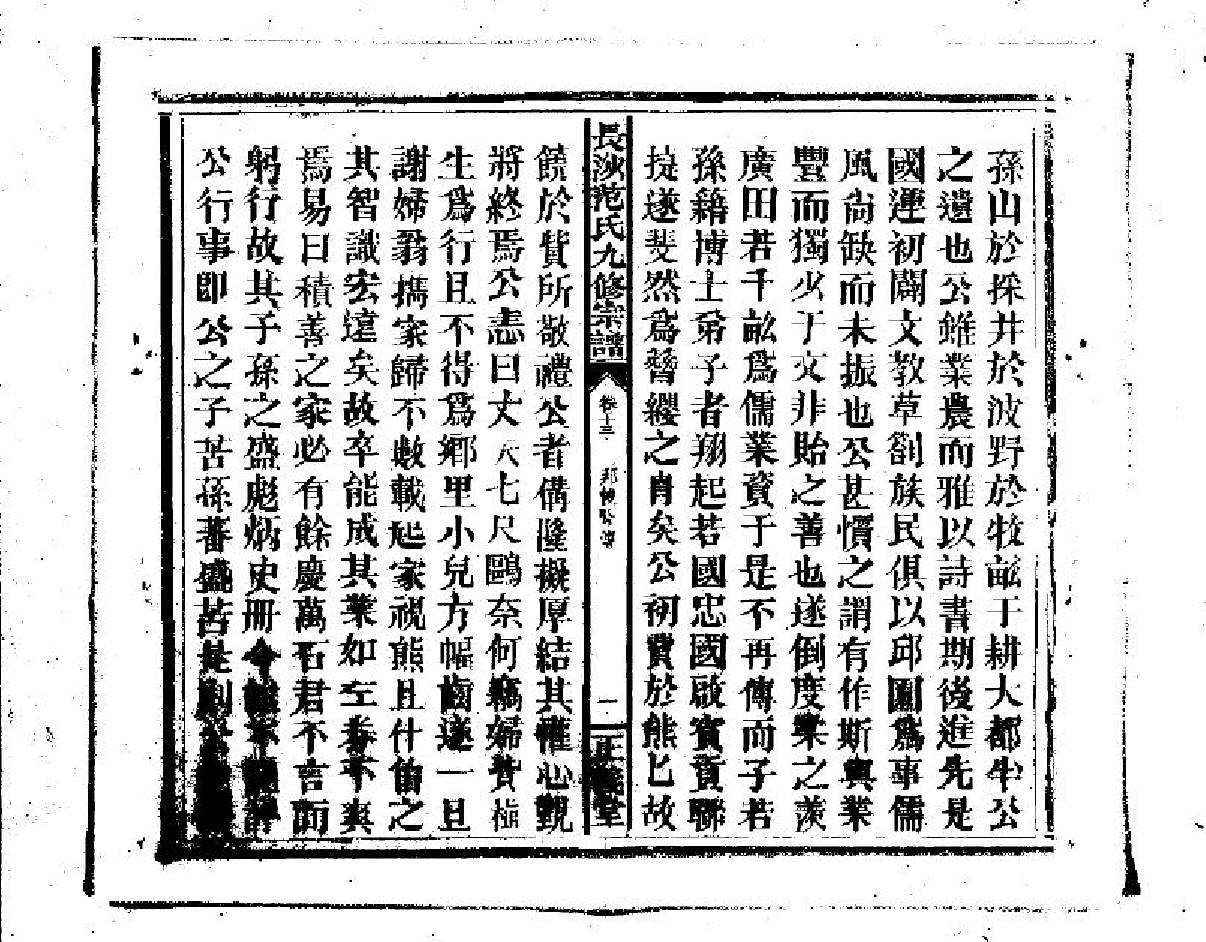 孫山於採井於波野於牧畝于耕大都半公
之遺也公雖業農而雅以詩書期後進先是
國運初闢文教草創族民俱以邱園爲事儒
風尙缺而未振也公甚懼之謂有作斯興業
豐而獨少于文非貽之善也遂倒度槖之羨
廣田若千畝爲儒業資于是不再傳而子若
孫籍博士弟子者翔起若國忠國啟賓貢聯
捷遂斐然爲簪纓之胄矣公初贅於熊匕故
長沙范氏九修宗譜
卷十三
一
正義堂
饒於貲所敬禮公者備隆擬厚結其懽心觀
將終焉公恚曰丈夫七尺鷗奈何竊婦貲
生爲行且不得爲鄉里小兒方幅齒遂一旦
謝婦翁攜家歸不數載起家視熊且什倍之
其智識宏遠矣故卒能成其業如左券不爽
焉易曰積善之家必有餘慶萬石君不言而
躬行故其子孫之盛彪炳史冊今
公行事卽公之子若孫蕃盛若是則